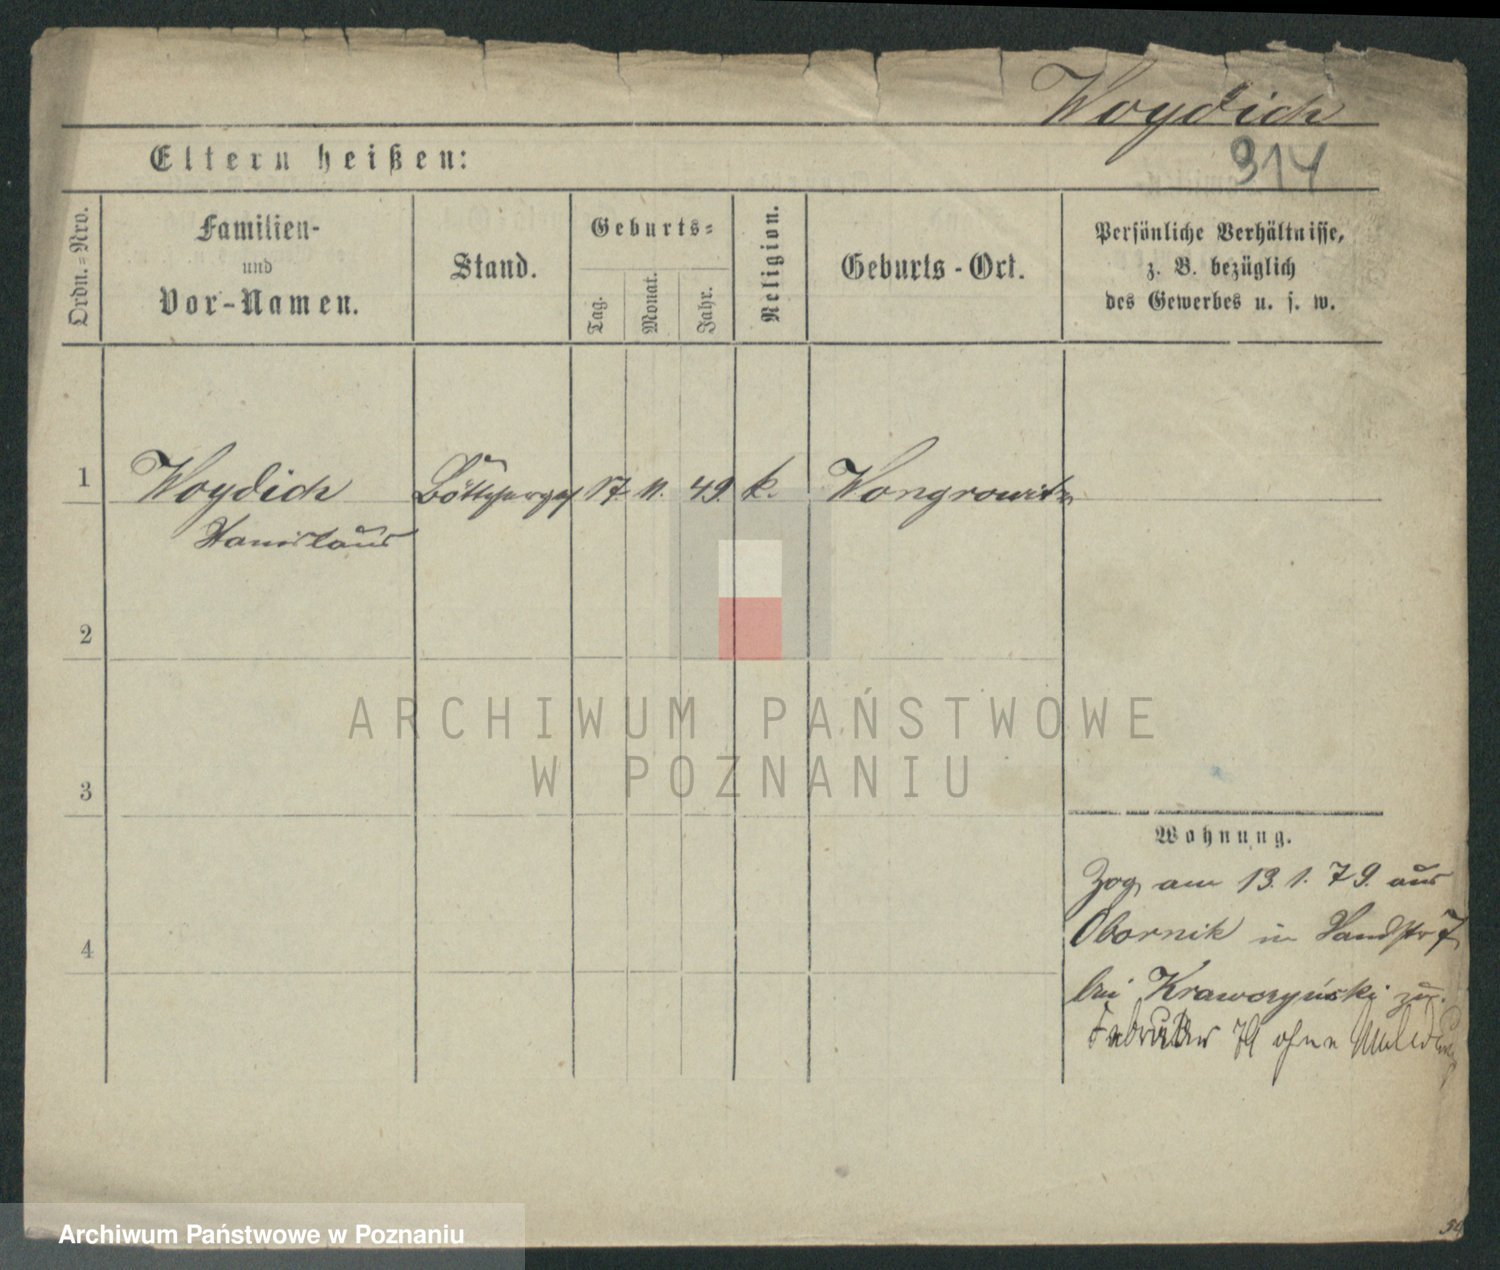 Woydich
314
Eltern heißen:
Ordn.=Nro.
Familien-
und
Vor-Namen.
Stand.
Geburts=
Tag.
Monat.
Jahr.
Religion.
Geburts-Ort.
Persönliche Verhältnisse,
z. B. bezüglich
des Gewerbes u. s. w.
1
Woydich
Stanislaus
Böttcherges
17. 11. 49. k. Wongrowitz
2
3
4
ARCHIWUM PAŃSTWOWE
W POZNANIU
Wohnung.
Zog am 13. 1. 79. aus
Obornik in Sandstr 7
bei Krawczyński zu.
Februar 79 ohne Meldung
Archiwum Państwowe w Poznaniu